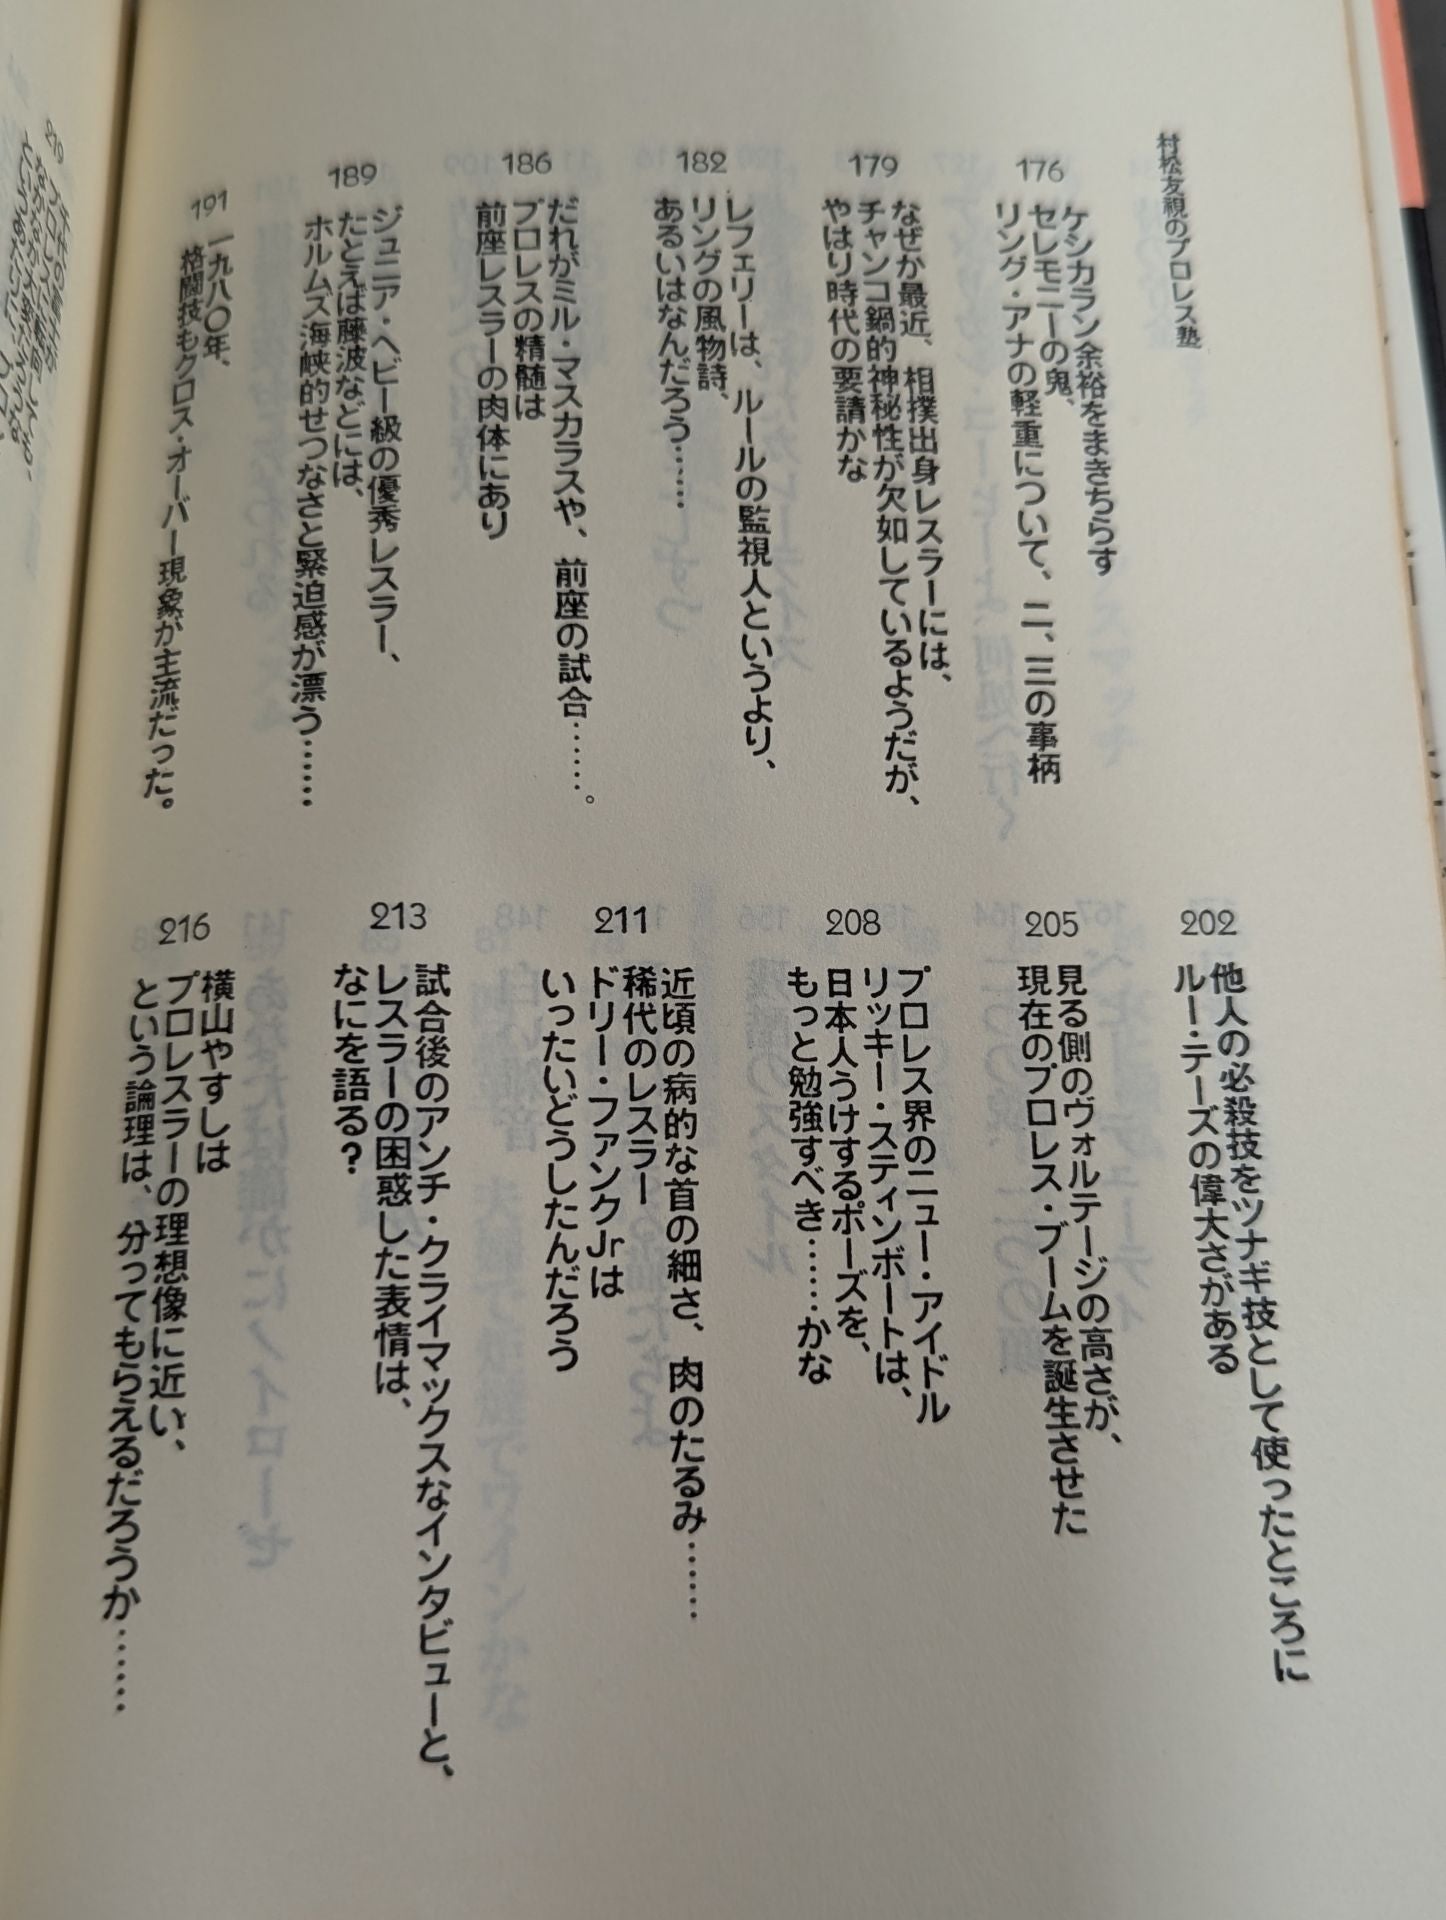 村松友視のプロレス塾
176
ケシカラン余裕をまきちらす
セレモニーの鬼、
リング・アナの軽重について、二、三の事柄
179
なぜか最近、相撲出身レスラーには、
チャンコ鍋的神秘性が欠如しているようだが、
やはり時代の要請かな
182
レフェリーは、ルールの監視人というより、
リングの風物詩、
あるいはなんだろう……
186
だれがミル・マスカラスや、前座の試合……。
プロレスの精髄は
前座レスラーの肉体にあり
189
ジュニア・ヘビー級の優秀レスラー、
たとえば藤波などには、
ホルムズ海峡的せつなさと緊迫感が漂う……
191
一九八〇年、
格闘技もクロス・オーバー現象が主流だった。
202
他人の必殺技をツナギ技として使ったところに
ルー・テーズの偉大さがある
205
見る側のヴォルテージの高さが、
現在のプロレス・ブームを誕生させた
208
プロレス界のニュー・アイドル
リッキー・スティンボートは、
日本人うけするポーズを、
もっと勉強すべき……かな
211
近頃の病的な首の細さ、肉のたるみ……
稀代のレスラー
ドリー・ファンクJrは
いったいどうしたんだろう
213
試合後のアンチ・クライマックスなインタビューと、
レスラーの困惑した表情は、
なにを語る？
216
横山やすしは
プロレスラーの理想像に近い、
という論理は、分ってもらえるだろうか……
219